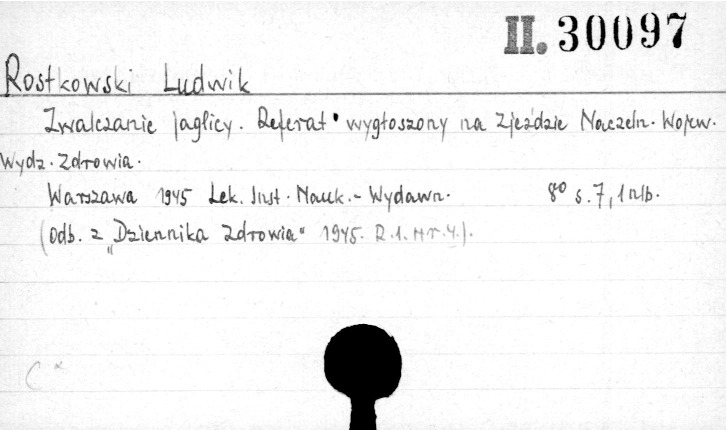 II. 30097
Rostkowski Ludwik
Zwalczanie jaglicy. Referat wygłoszony na Zjeździe Naczeln. Wojew.
Wydz. Zdrowia.
Warszawa 1945 Lek. Inst. Nauk.-Wydawn. 8° s. 7, 1 nlb.
(Odb. z „Dziennika Zdrowia" 1945. R.1. Nr.4.).
C x